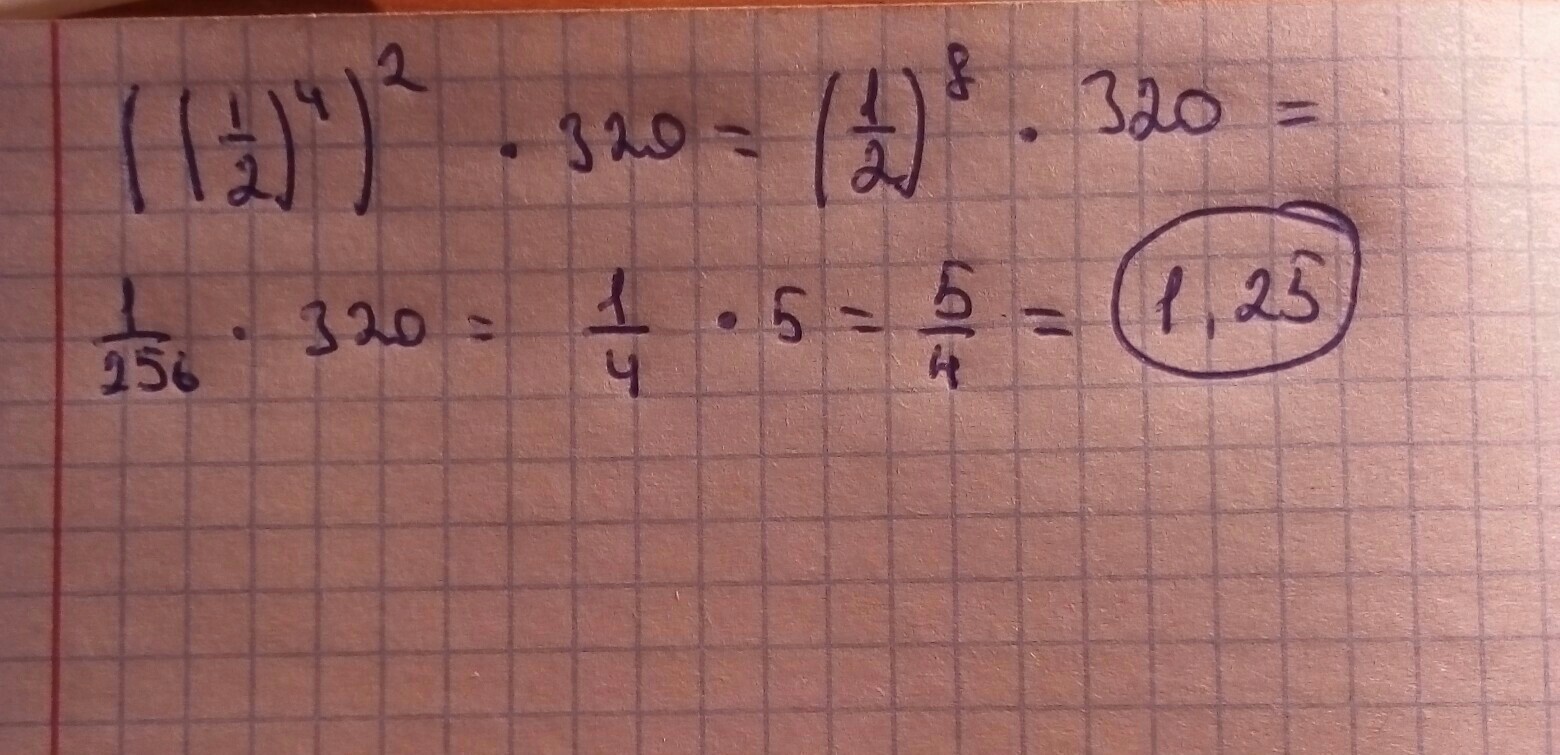 ((1/2)^4)^2 · 320 = (1/2)^8 · 320 =
1/256 · 320 = 1/4 · 5 = 5/4 = 1,25